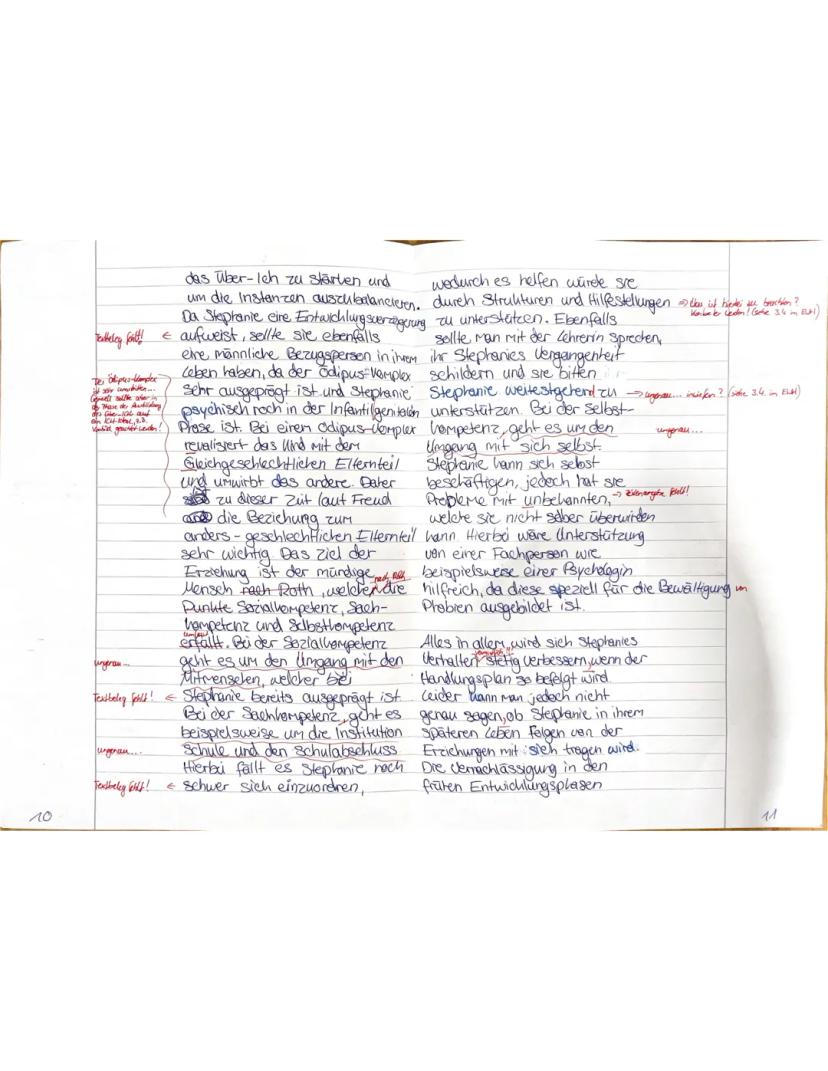 das Über-Ich zu stärken und
um die Instanzen auszubalancieren.
Da Stephanie eine Entwicklungsverzögerung
Textbeleg fehlt! ← aufweist, sollte sie ebenfalls
eine männliche Bezugsperson in ihrem
Leben haben, da der Ödipus-Komplex
sehr ausgeprägt ist und Stephanie
psychisch noch in der Infantilgenitalen
Phase ist. Bei einen Ödipus-Komplex
revalisiert das Kind mit dem
Gleichgeschlechtlichen Elternteil
und umwirbt das andere. Daher
zu dieser Zeit laut Freud
die Beziehung zum
anders-geschlechtlichen Elternteil
sehr wichtig. Das Ziel der
Erziehung ist der mündige
nach Roth
Mensch nach Roth, welcher die
Punkte Sozialkompetenz, Sach-
kompetenz und Selbstkompetenz
erfüllt. Bei der Sozialkompetenz
ungenau... geht es um den Umgang mit den
Mitmenschen, welcher bei
Textbeleg fehlt! ← Stephanie bereits ausgeprägt ist.
Bei der Sachkompetenz, geht es
beispielsweise um die Institution
ungenau.... Schule und den Schulabschluss
Hierbei fällt es Stephanie noch
Textbeleg fehlt! ← schwer sich einzuordnen,
10
Der Ödipus-Komplex
ist sehr umstritten...
der Phase der Ausbildung
des Über-Ich auf
wodurch es helfen würde sie
durch Strukturen und Hilfestellungen ⇒ Was ist hierbei zu beachten?
(siehe 3.4 im EWH)
zu unterstützen. Ebenfalls
sollte man mit der Lehrerin sprechen,
ihr Stephanies Vergangenheit
schildern und sie bitten
Stephanie weitestgehend zu → ungenau... inwiefern? (siehe 3.4. im EWH)
unterstützen. Bei der Selbst-
kompetenz, geht es um den ungenau...
Umgang mit sich selbst.
Stephanie kann sich selbst
beschäftigen, jedoch hat sie
Probleme mit unbekannten, → Zeilenangabe fehlt!
welche sie nicht selber überwinden
kann. Hierbei wäre Unterstützung
von einer Fachperson wie
beispielsweise einer Psychologin
hilfreich, da diese speziell für die Bewältigung von
Phobien ausgebildet ist.
Alles in allem, wird sich Stephanies
Verhalten stetig verbessern, wenn der
Handlungsplan so befolgt wird
Leider kann man jedoch nicht
genau sagen, ob Stephanie in ihrem
späteren Leben Folgen von der
Erziehungen mit sich tragen wird.
Die Vernachlässigung in den
frühen Entwicklungsphasen
11